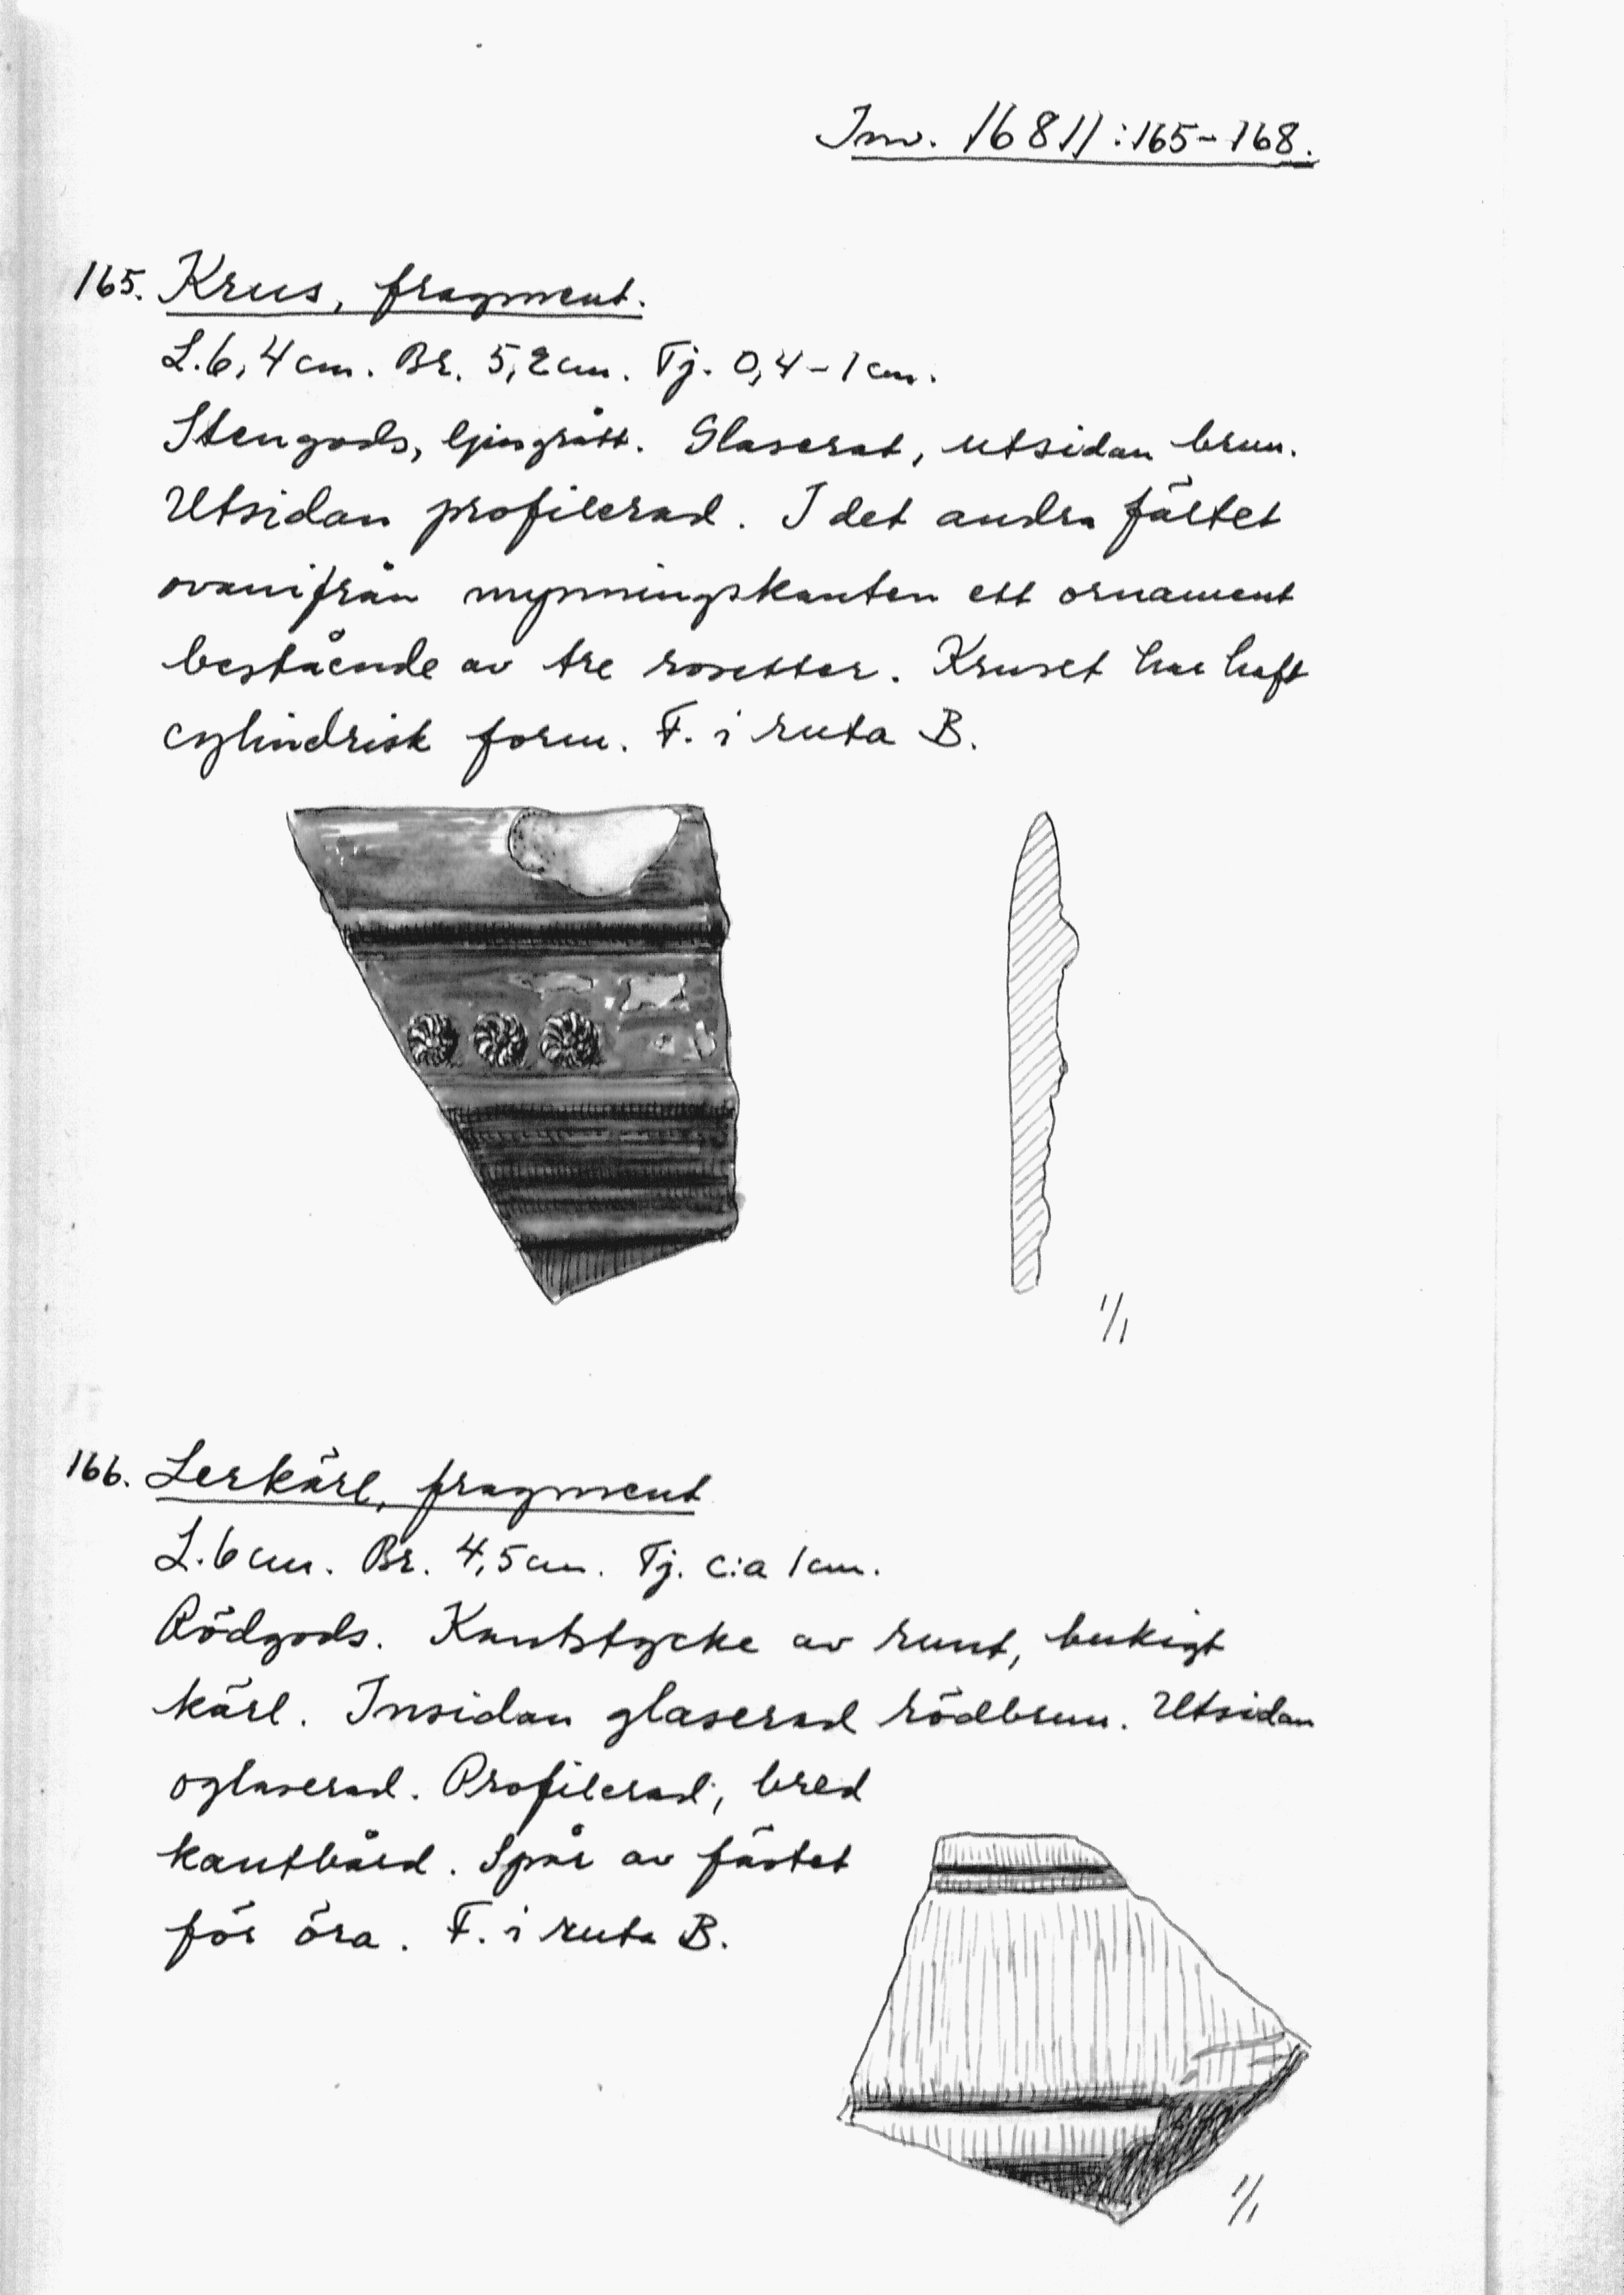 Inv. 16811:165-168.
165. Krus, fragment.
L. 6,4 cm. Br. 5,2 cm. Tj. 0,4-1 cm.
Stengods, ljusgrått. Glaserat, utsidan brun.
Utsidan profilerad. I det andra fältet
ovanifrån mynningskanten ett ornament
bestående av tre rosetter. Kruset har haft
cylindrisk form. F. i ruta B.
1/1
166. Lerkärl, fragment
L. 6 cm. Br. 4,5 cm. Tj. c:a 1 cm.
Rödgods. Kantstycke av runt, bukigt
kärl. Insidan glaserad rödbrun. Utsidan
oglaserad. Profilerad, bred
kantbård. Spår av fästet
för öra. F. i ruta B.
1/1